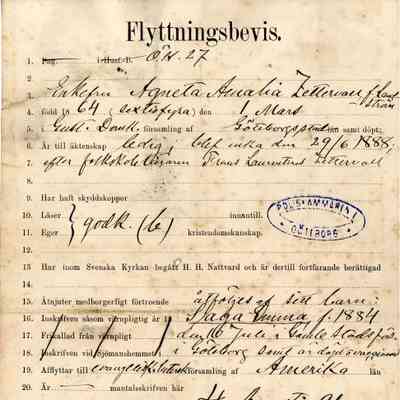 Flyttningsbevis.
1. Pag. i Husf.-B. 27
2.
3. Enkefru Agneta Amalia Zettervall f.
4. född 18 64 (sextifyra) den 1 Mars
5. i Gust. Domk. församling af Göteborgs län samt döpt;
6. Är till äktenskap ledig, blef enka den 29/6 1888;
7. efter folkskoleläraren Frans Laurentius Zetervall
8.
9. Har haft skyddskoppor
10. Läser innantill.
11. Eger godk. (b) kristendomskunskap.
12.
13. Har inom Svenska Kyrkan begått H. H. Nattvard och är dertill fortfarande berättigad
14.
15. Åtnjuter medborgerligt förtroende åtföljes af sitt barn:
16. Inskrifven såsom värnpligtig år 18 Emma f. 1884
17. Frikallad från värnpligt den 16 Juli i Gamle stadsförs.
18. Inskrifven vid Sjömanshemmet i Göteborg samt är döpt
19. Afflyttar till församling af Amerika län
20. År mantalsskrifven här
POLISKAMMAREN I
GÖTEBORG